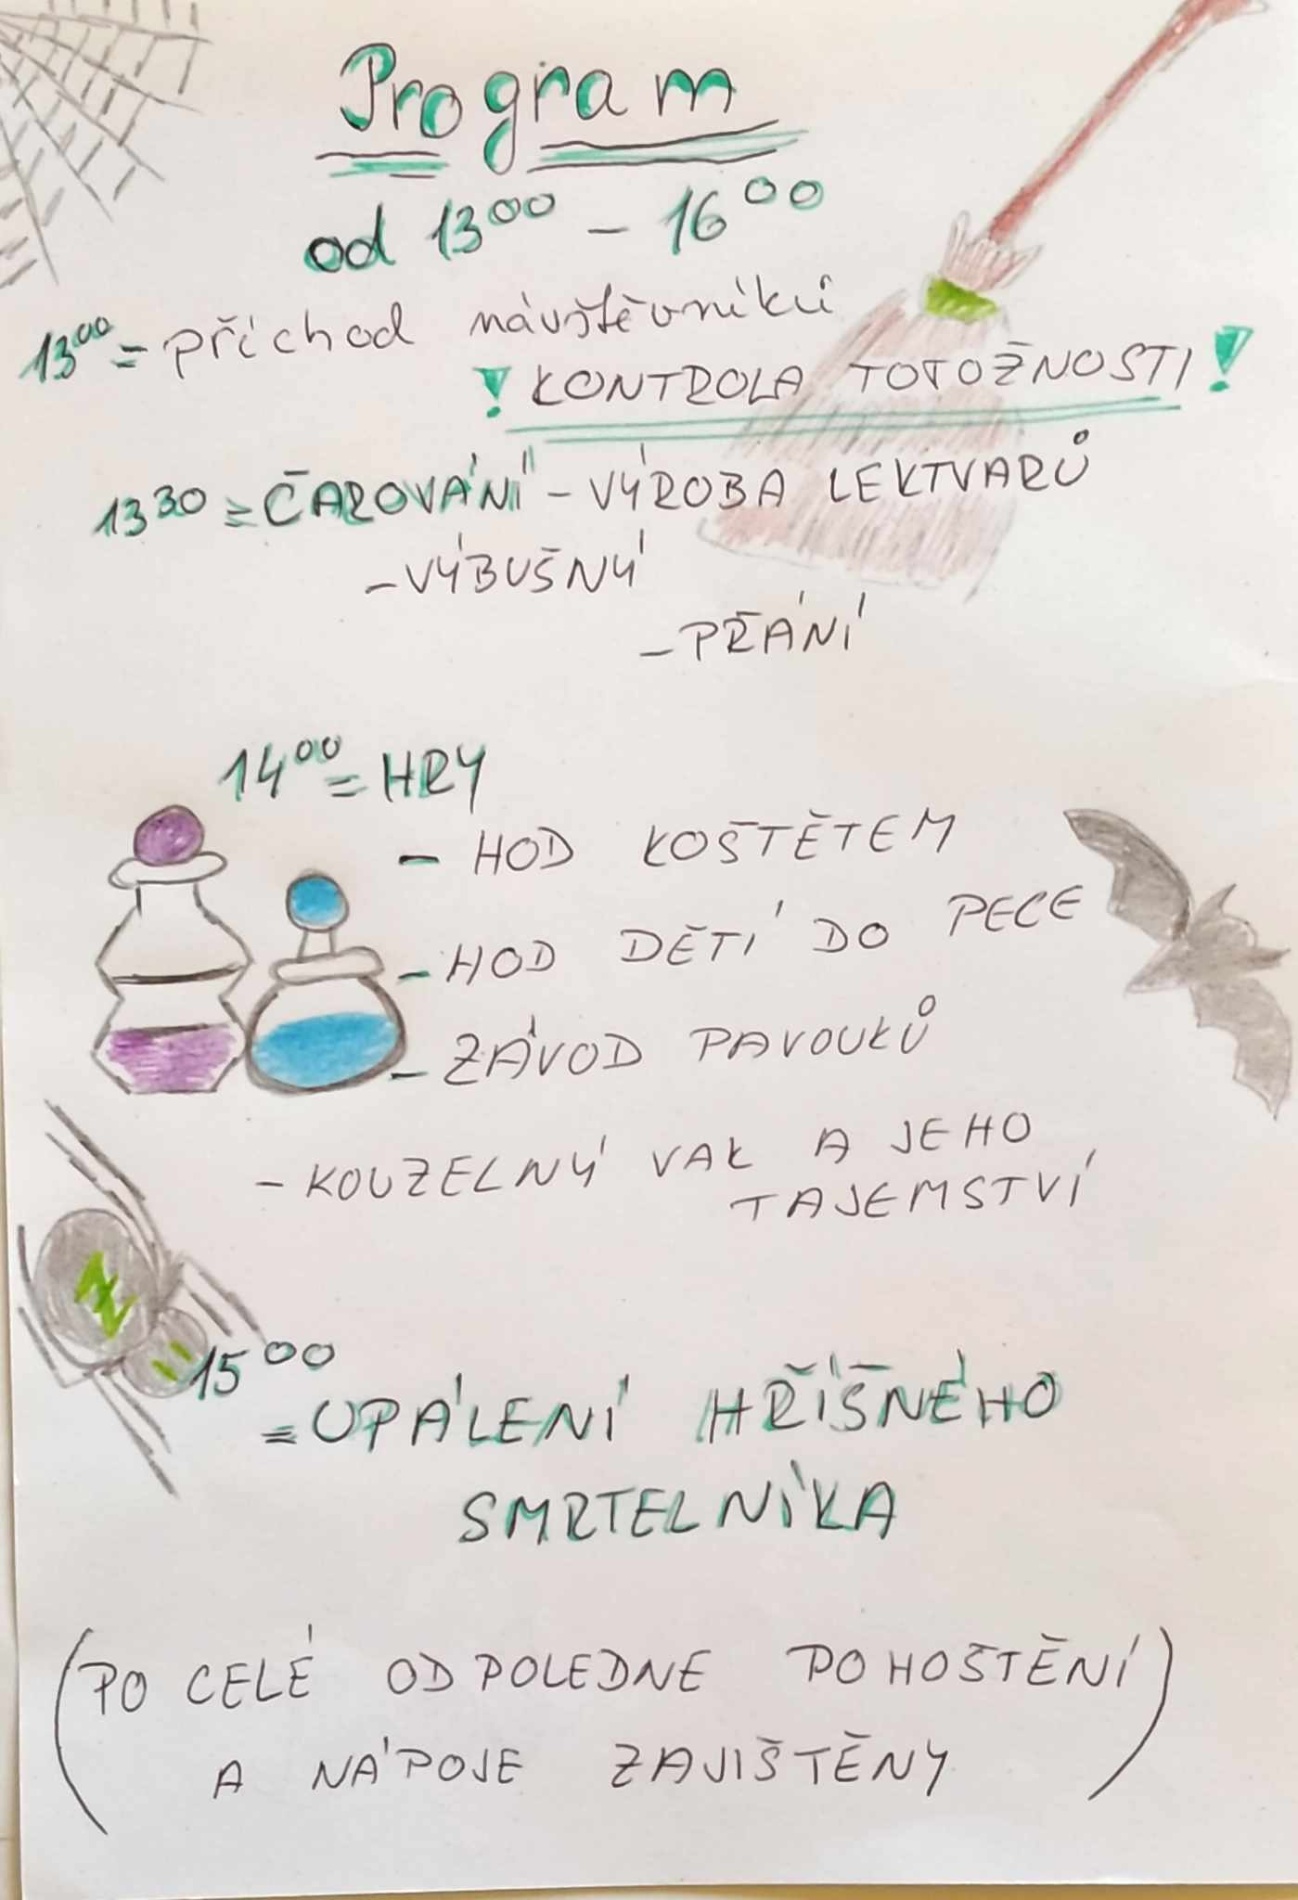 Program
od 13⁰⁰ – 16⁰⁰
13⁰⁰ = příchod návštěvníků
! KONTROLA TOTOŽNOSTI !
13³⁰ = ČAROVÁNÍ - VÝROBA LEKTVARŮ
- VÝBUŠNÝ
- PŘÁNÍ
14⁰⁰ = HRY
- HOD KOŠTĚTEM
- HOD DĚTÍ DO PECE
- ZÁVOD PAVOUKŮ
- KOUZELNÝ VAK A JEHO
TAJEMSTVÍ
15⁰⁰
= UPÁLENÍ HŘÍŠNÉHO
SMRTELNÍKA
(PO CELÉ ODPOLEDNE POHOŠTĚNÍ
A NÁPOJE ZAJIŠTĚNY)